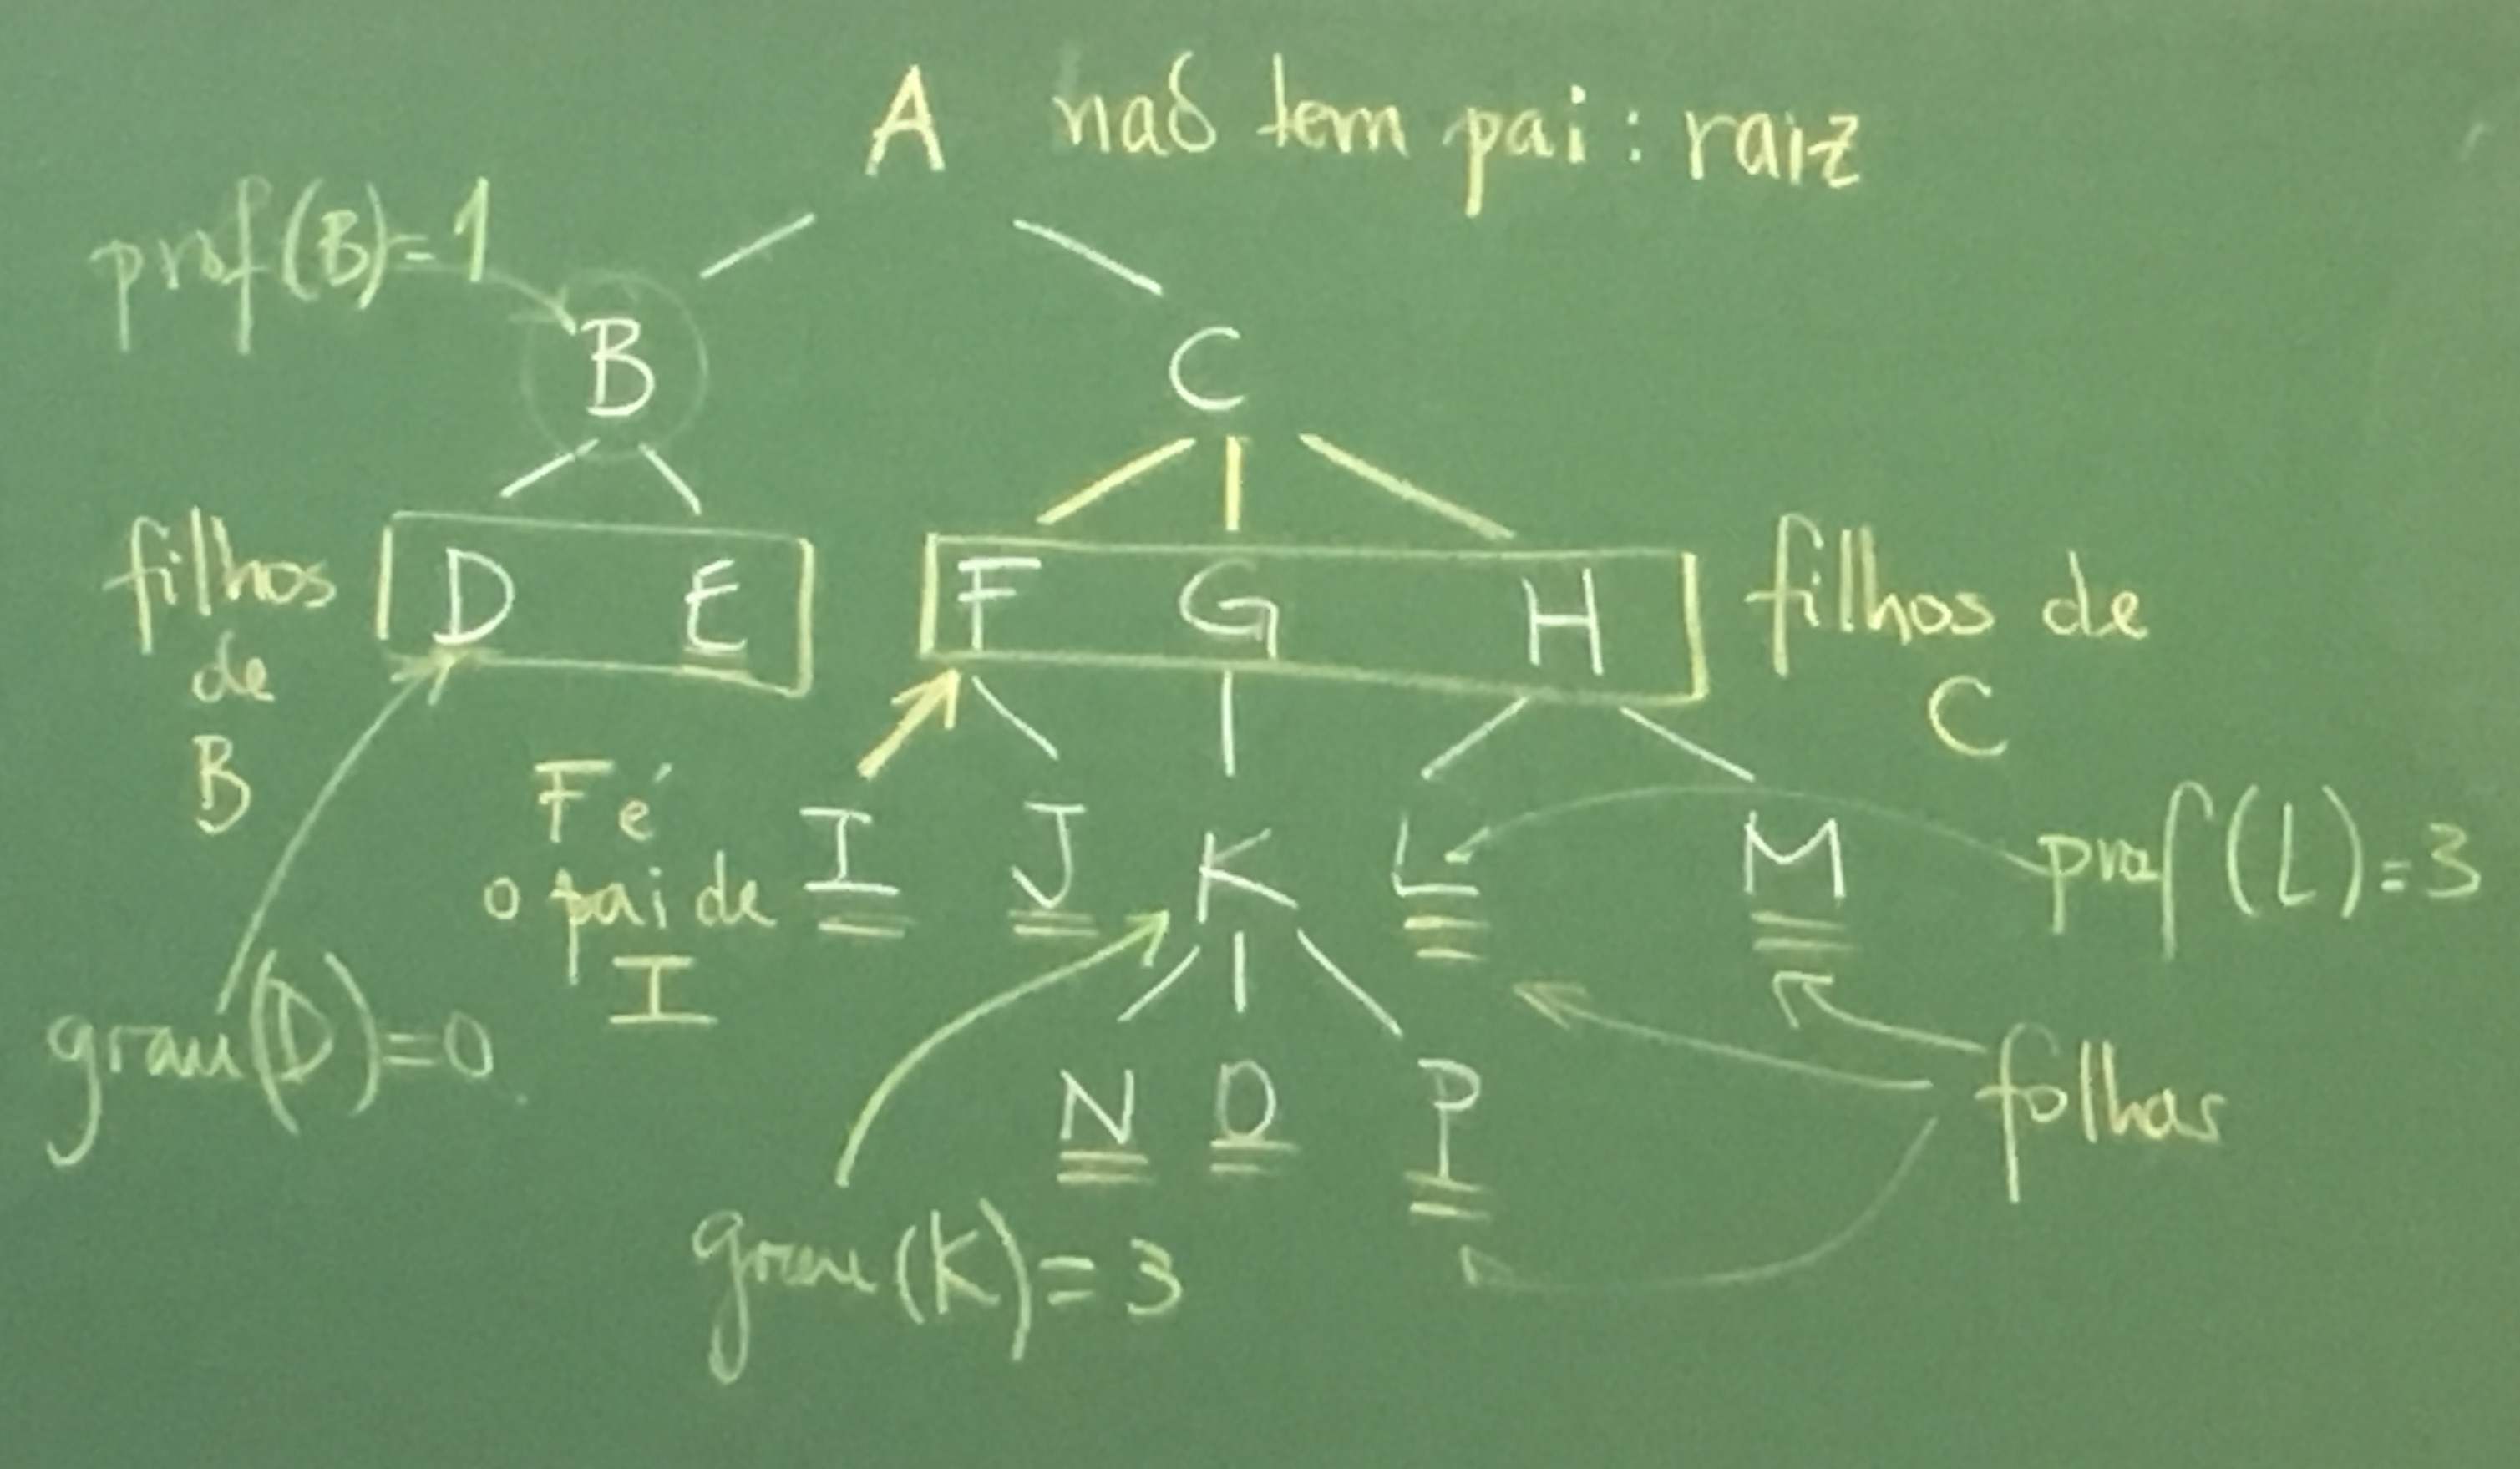 A não tem pai: raiz
prof(B)=1
B C
filhos
de
B
D E
F G H
filhos de
C
F é
o pai de
I
I J K L M
prof(L)=3
grau(D)=0
N O P
folhas
grau(K)=3